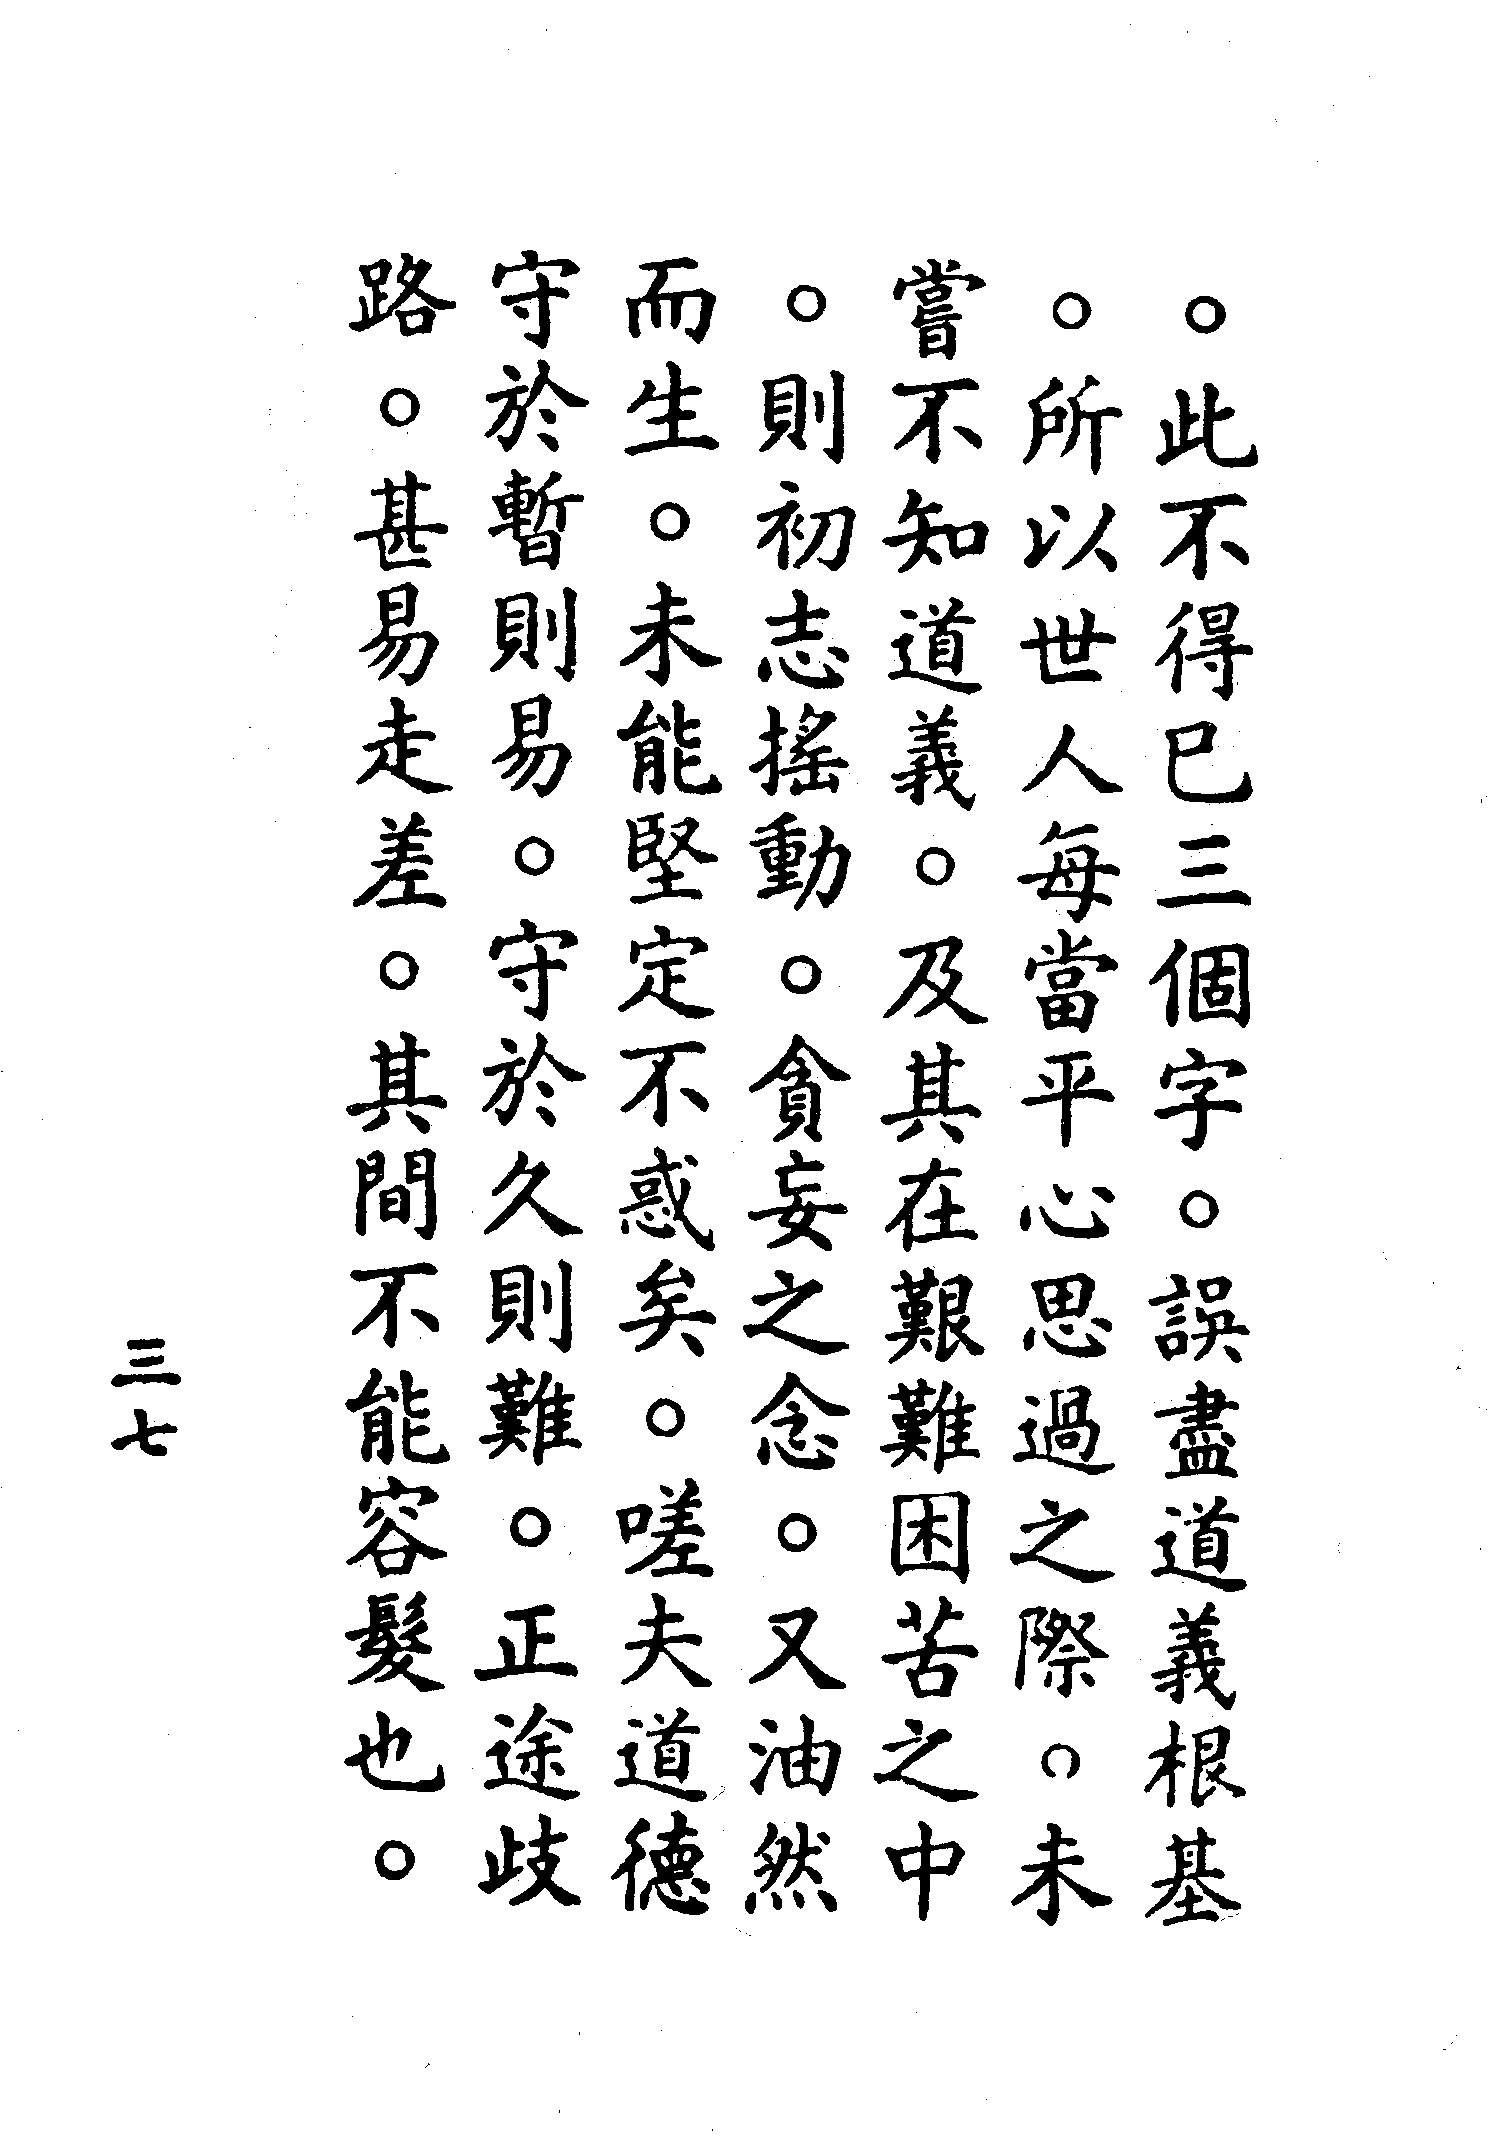 。此不得已三個字。誤盡道義根基
。所以世人每當平心思過之際。未
嘗不知道義。及其在艱難困苦之中
。則初志搖動。貪妄之念。又油然
而生。未能堅定不惑矣。嗟夫道德
守於暫則易。守於久則難。正途歧
路。甚易走差。其間不能容髮也。
三七